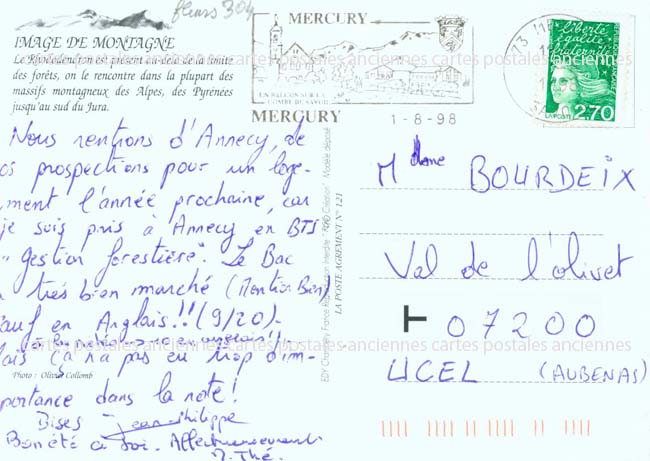 fleurs 304
IMAGE DE MONTAGNE
Le Rhododendron est présent au-delà de la limite
des forêts, on le rencontre dans la plupart des
massifs montagneux des Alpes, des Pyrénées
jusqu'au sud du Jura.
MERCURY
UN BALCON SUR LA
COMBE DE SAVOIE
MERCURY
1-8-98
liberté
égalité
fraternité
LA POSTE
2,70
Nous rentrons d'Annecy, de
os prospections pour un loge-
ment l'année prochaine, car
je suis pris à Annecy en BTS
"Gestion forestière". Le Bac
a très bien marché (Mention Bien)
auf en Anglais!! (9/20)-
ais ça n'a pas eu trop d'im-
portance dans la note!
Bises Jean-Philippe
Bon été à toi. Affectueusement
M. Thé.
Photo : Olivier Collomb
LA POSTE AGREMENT N° 121
Mdme BOURDEIX
Val de l'olivet
07200
UCEL (AUBENAS)
cartes postales anciennes